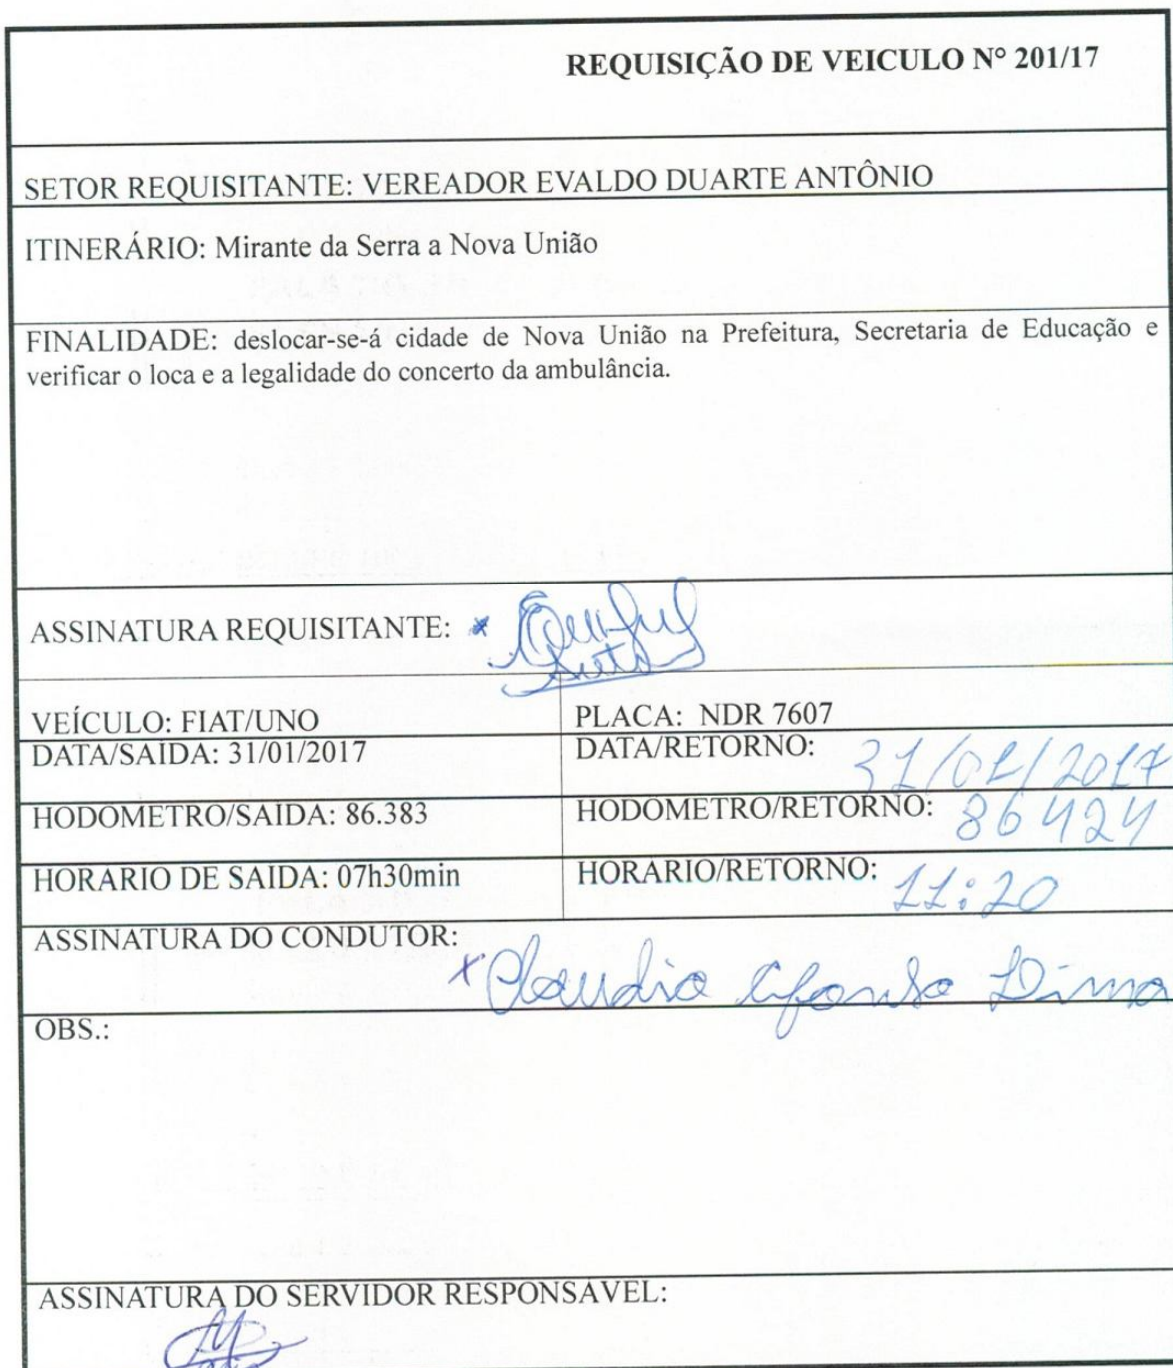 REQUISIÇÃO DE VEICULO Nº 201/17
SETOR REQUISITANTE: VEREADOR EVALDO DUARTE ANTÔNIO
ITINERÁRIO: Mirante da Serra a Nova União
FINALIDADE: deslocar-se-á cidade de Nova União na Prefeitura, Secretaria de Educação e
verificar o loca e a legalidade do concerto da ambulância.
ASSINATURA REQUISITANTE: *
VEÍCULO: FIAT/UNO PLACA: NDR 7607
DATA/SAÍDA: 31/01/2017 DATA/RETORNO: 31/01/2017
HODÔMETRO/SAÍDA: 86.383 HODÔMETRO/RETORNO: 86424
HORÁRIO DE SAÍDA: 07h30min HORÁRIO/RETORNO: 11:20
ASSINATURA DO CONDUTOR:
x Claudio Afonso Lima
OBS.:
ASSINATURA DO SERVIDOR RESPONSÁVEL: